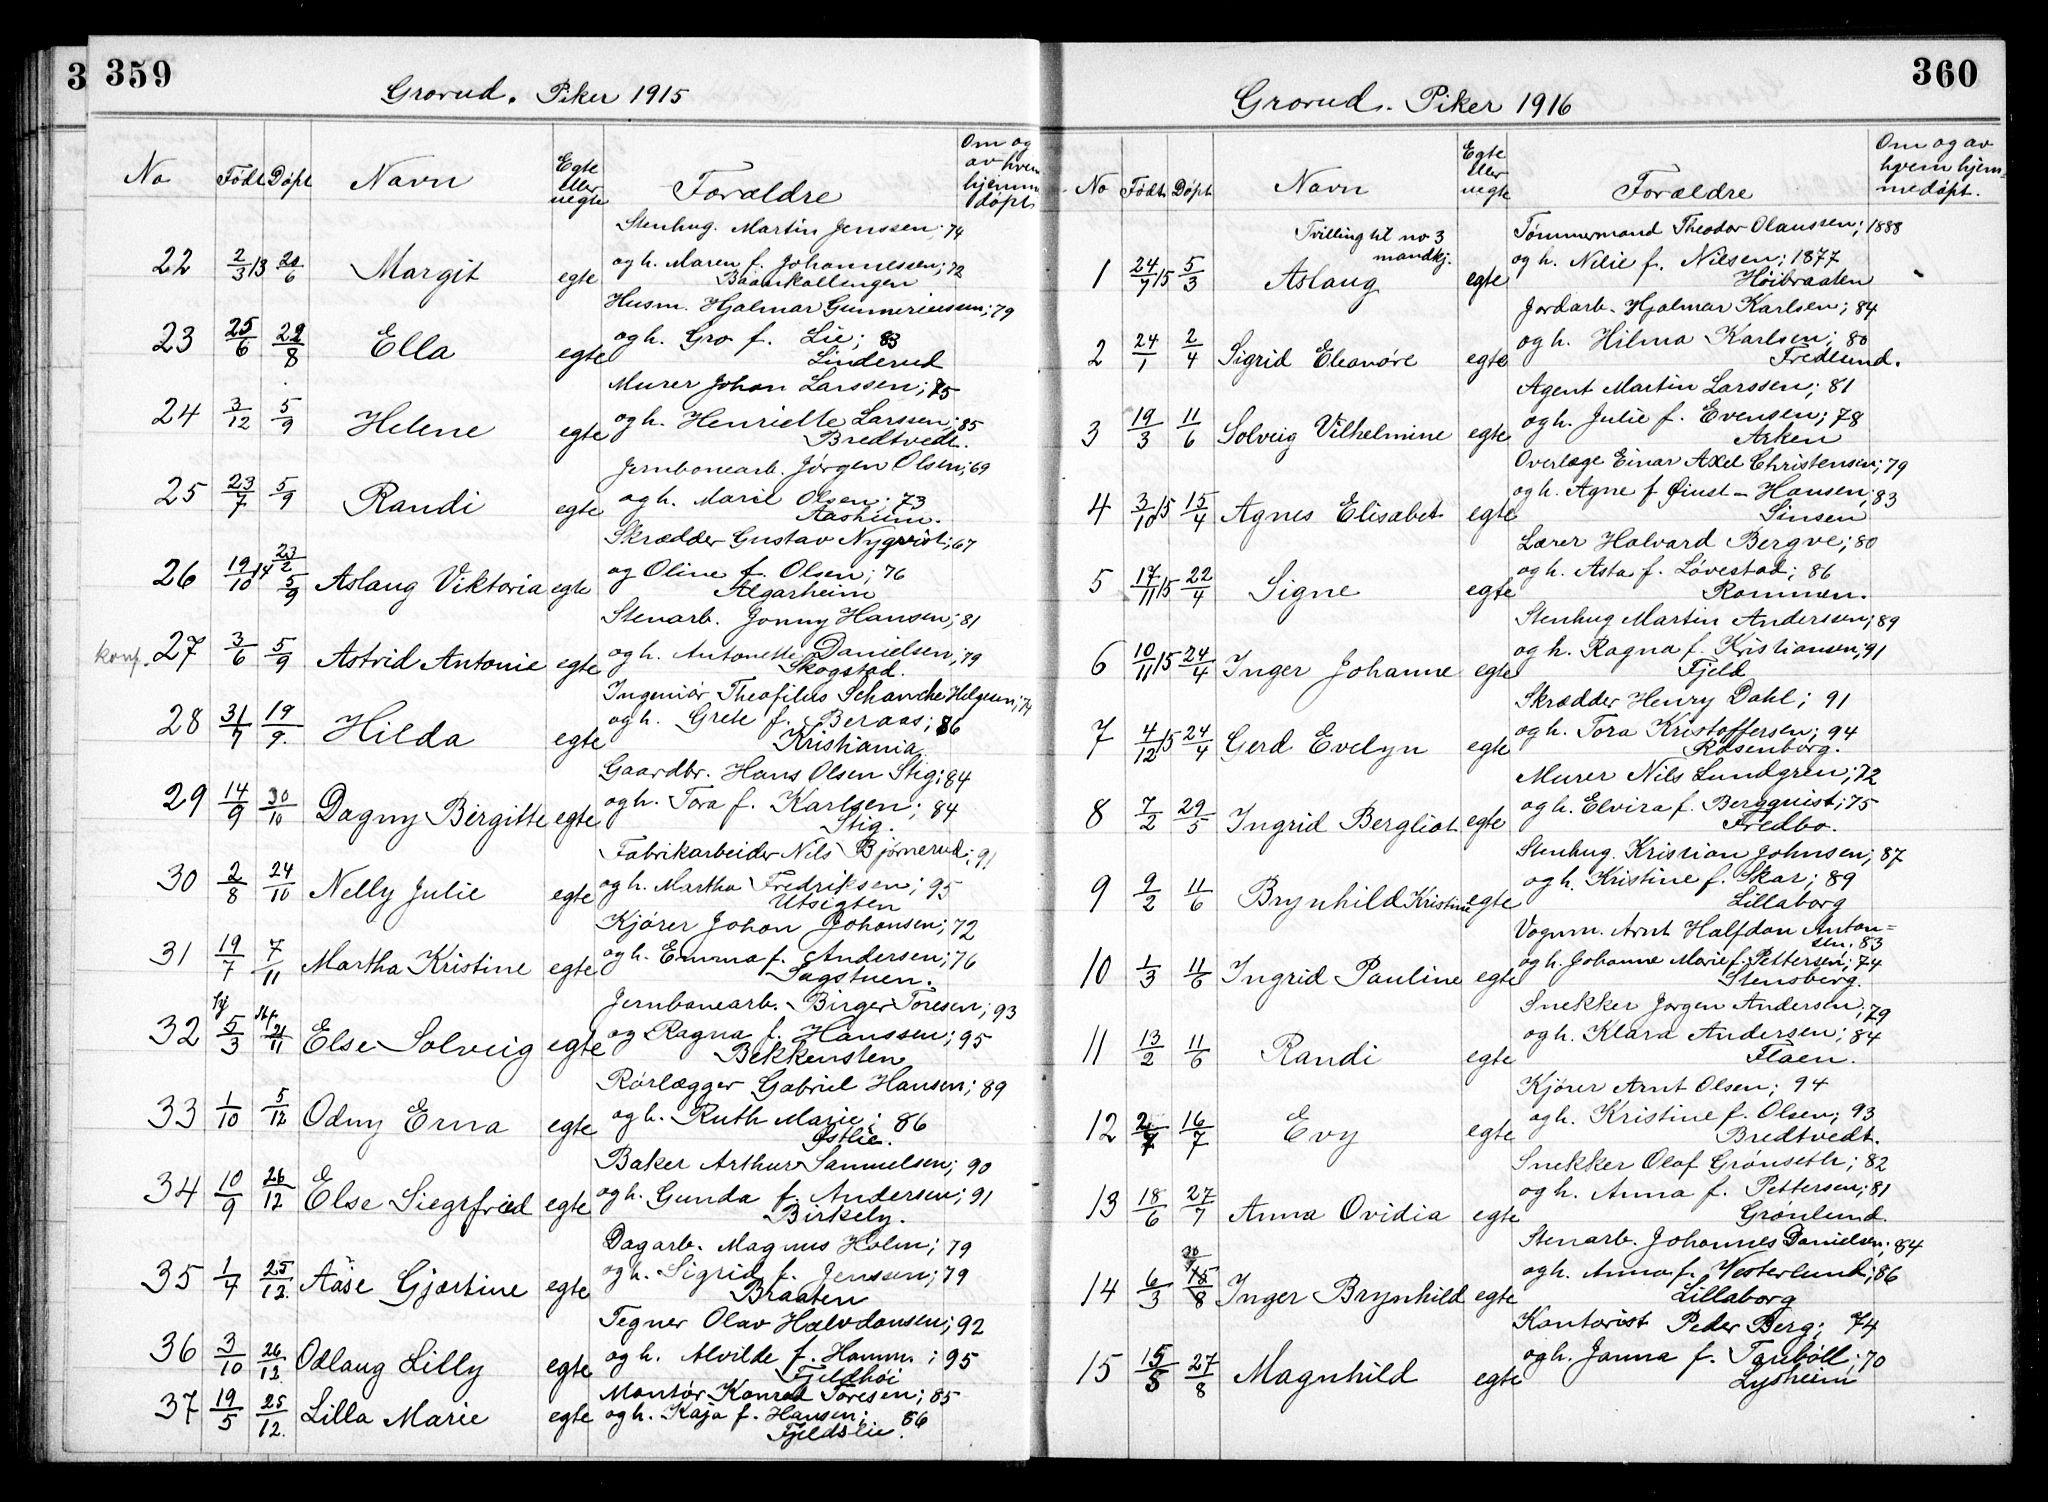 3
359
Grorud. Piker 1915
No Født Døpt Navn Egte eller uegte Forældre Om og av hvem hjemmedøpt
22 2/3 13 20/6 Margit egte Stenhug. Martin Jenssen; 74
og h. Maren f. Johannessen; 72
Baankallengen
23 25/6 22/8 Ella egte Husm. Hjalmar Gunneriussen; 79
og h. Gro f. Lie; 83
Linderud
24 3/12 5/9 Helene egte Murer Johan Larssen; 85
og h. Henriette Larssen; 85
Bredtvedt.
25 23/7 5/9 Randi egte Jernbanearb. Jørgen Olsen; 69
og h. Marie Olsen; 73
Aasheim.
26 19/10 14 23/2 5/9 Aslaug Viktoria egte Skrædder Gustav Nyqvist; 67
og Oline f. Olsen; 76
Algarheim
konf. 27 3/6 5/9 Astrid Antonie egte Stenarb. Jonny Hansen; 81
og h. Antonette Danielsen; 79
Skogstad.
28 31/7 19/9. Hilda egte Ingeniør Theofilus Schancke Helgesen; 74
og h. Grete f. Beraas; 86
Kristiania.
29 14/9 30/10 Dagny Birgitte egte Gaardbr. Hans Olsen Stig; 84
og h. Tora f. Karlsen; 84
Stig.
30 2/8 24/10 Nelly Julie egte Fabrikarbeider Nils Bjørnerud; 91
og h. Martha Fredriksen; 95
Utsigten
31 19/7 7/11 Martha Kristine egte Kjører Johan Johansen; 72
og h. Emma f. Andersen; 76
Sagstuen.
32 5/3 21/11 Else Solveig egte Jernbanearb. Birger Toresen; 93
og Ragna f. Hanssen; 95
Bekkensten
33 1/10 5/12 Odny Erna egte Rørlægger Gabriel Hansen; 89
og h. Ruth Marie; 86
Østlie.
34 10/9 26/12 Else Siegrfried egte Baker Arthur Samuelsen; 90
og h. Gunda f. Andersen; 91
Birkely.
35 1/7 25/12. Aase Gjertine egte Dagarb. Magnus Holm; 79
og h. Sigrid f. Jenssen; 79
Braaten
36 3/10 26/12. Odlaug Lilly egte Tegner Olav Halvdansen; 92
og h. Alvilde f. Hamm.; 95
Fjeldhøi
37 19/5 25/12. Lilla Marie egte Montør Konrad Toresen; 85
og h. Kaja f. Hansen; 86
Fjeldslie.
360
Grorud. Piker 1916
No Født Døpt Navn Egte eller uegte Forældre Om og av hvem hjemmedøpt.
1 24/7 15 5/3 Tvilling til no 3 mandkj. Aslaug egte Tømmermand Theodor Olaussen; 1888
og h. Nilie f. Nilsen; 1877
Høibraaten
2 24/1 2/4 Sigrid Eleanøre egte Jordarb. Hjalmar Karlsen; 84
og h. Hilma Karlsen; 80
Fredlund.
3 19/3 11/6 Solveig Vilhelmine egte Agent Martin Larssen; 81
og h. Julie f. Evensen; 78
Arken
4 3/10 15 15/4 Agnes Elisabet egte Overlæge Einar Axel Christensen; 79
og h. Agne f Qiust-Hansen; 83
Sinsen
5 17/11 15 22/4 Signe egte Lærer Halvard Bergve; 80
og h. Asta f. Løvestad; 86
Rommen.
6 10/11 15 24/4 Inger Johanne egte Stenhug Martin Anderssen; 89
og h. Ragna f. Kristiansen; 91
Fjeld
7 4/12 15 24/4 Gerd Evelyn egte Skrædder Henry Dahl; 91
og h. Tora Kristoffersen; 94
Rosenborg.
8 7/2 29/5 Ingrid Bergliot egte Murer Nils Lundgren; 72
og h. Elvira f. Bergquist; 75
Fredbo.
9 9/2 11/6 Brynhild Kristine egte Stenhug. Kristian Johnsen; 87
og h. Kristine f. Skar; 89
Lillaborg
10 1/3 11/6 Ingrid Pauline egte Vognm. Arnt Halfdan Anton=
sen. 83
og h. Johanne Marie f. Pettersen; 74
Stensberg.
11 13/2 11/6 Randi egte Snekker Jørgen Andersen; 79
og h. Klara Andersen; 84
Flaen.
12 2/7 16/7 Evy egte Kjører Arnt Olsen; 94
og h. Kristine f. Olsen; 93
Bredtvedt.
13 18/6 27/7 Anna Ovidia egte Snekker Olaf Grønseth; 82
og h. Anna f. Pettersen; 81
Grønlund.
14 6/3 15/8 Inger Brynhild egte Stenarb. Johannes Danielsen; 84
og h. Anna f. Vesterlund; 86
Lillaborg
15 15/5 27/8 Magnhild egte Kontorist Peder Berg; 74
og h. Janna f. Tanbøll; 70
Lysheim